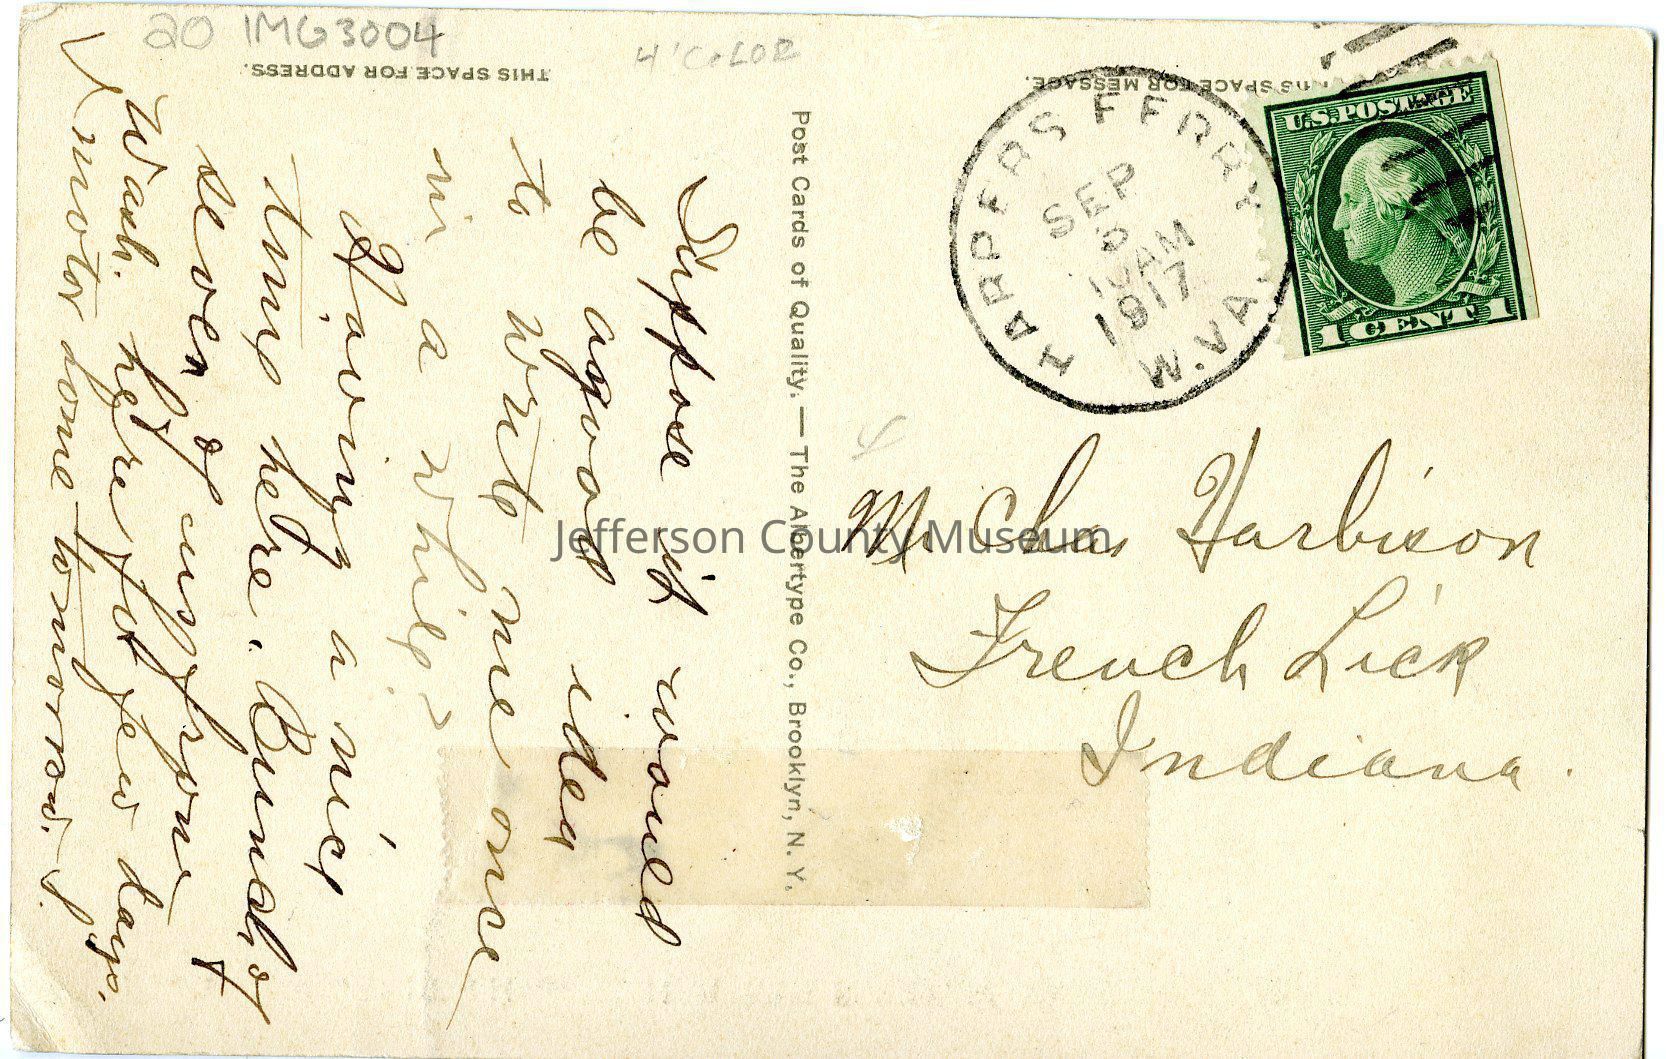 20 IMG3004
4' COLOR
THIS SPACE FOR ADDRESS.
THIS SPACE FOR MESSAGE.
HARPERS FERRY
SEP
5
10AM
1917
W.VA.
U.S. POSTAGE
1 CENT 1
Post Cards of Quality. — The Albertype Co., Brooklyn, N. Y.
Mr Chas Harbison
French Lick
Indiana.
Suppose it would
be a good idea
to write me once
in a while?
Having a nice
time here. Bunch of
seven of us from
Wash. here for few days.
motor home to-morrow. J.
Jefferson County Museum